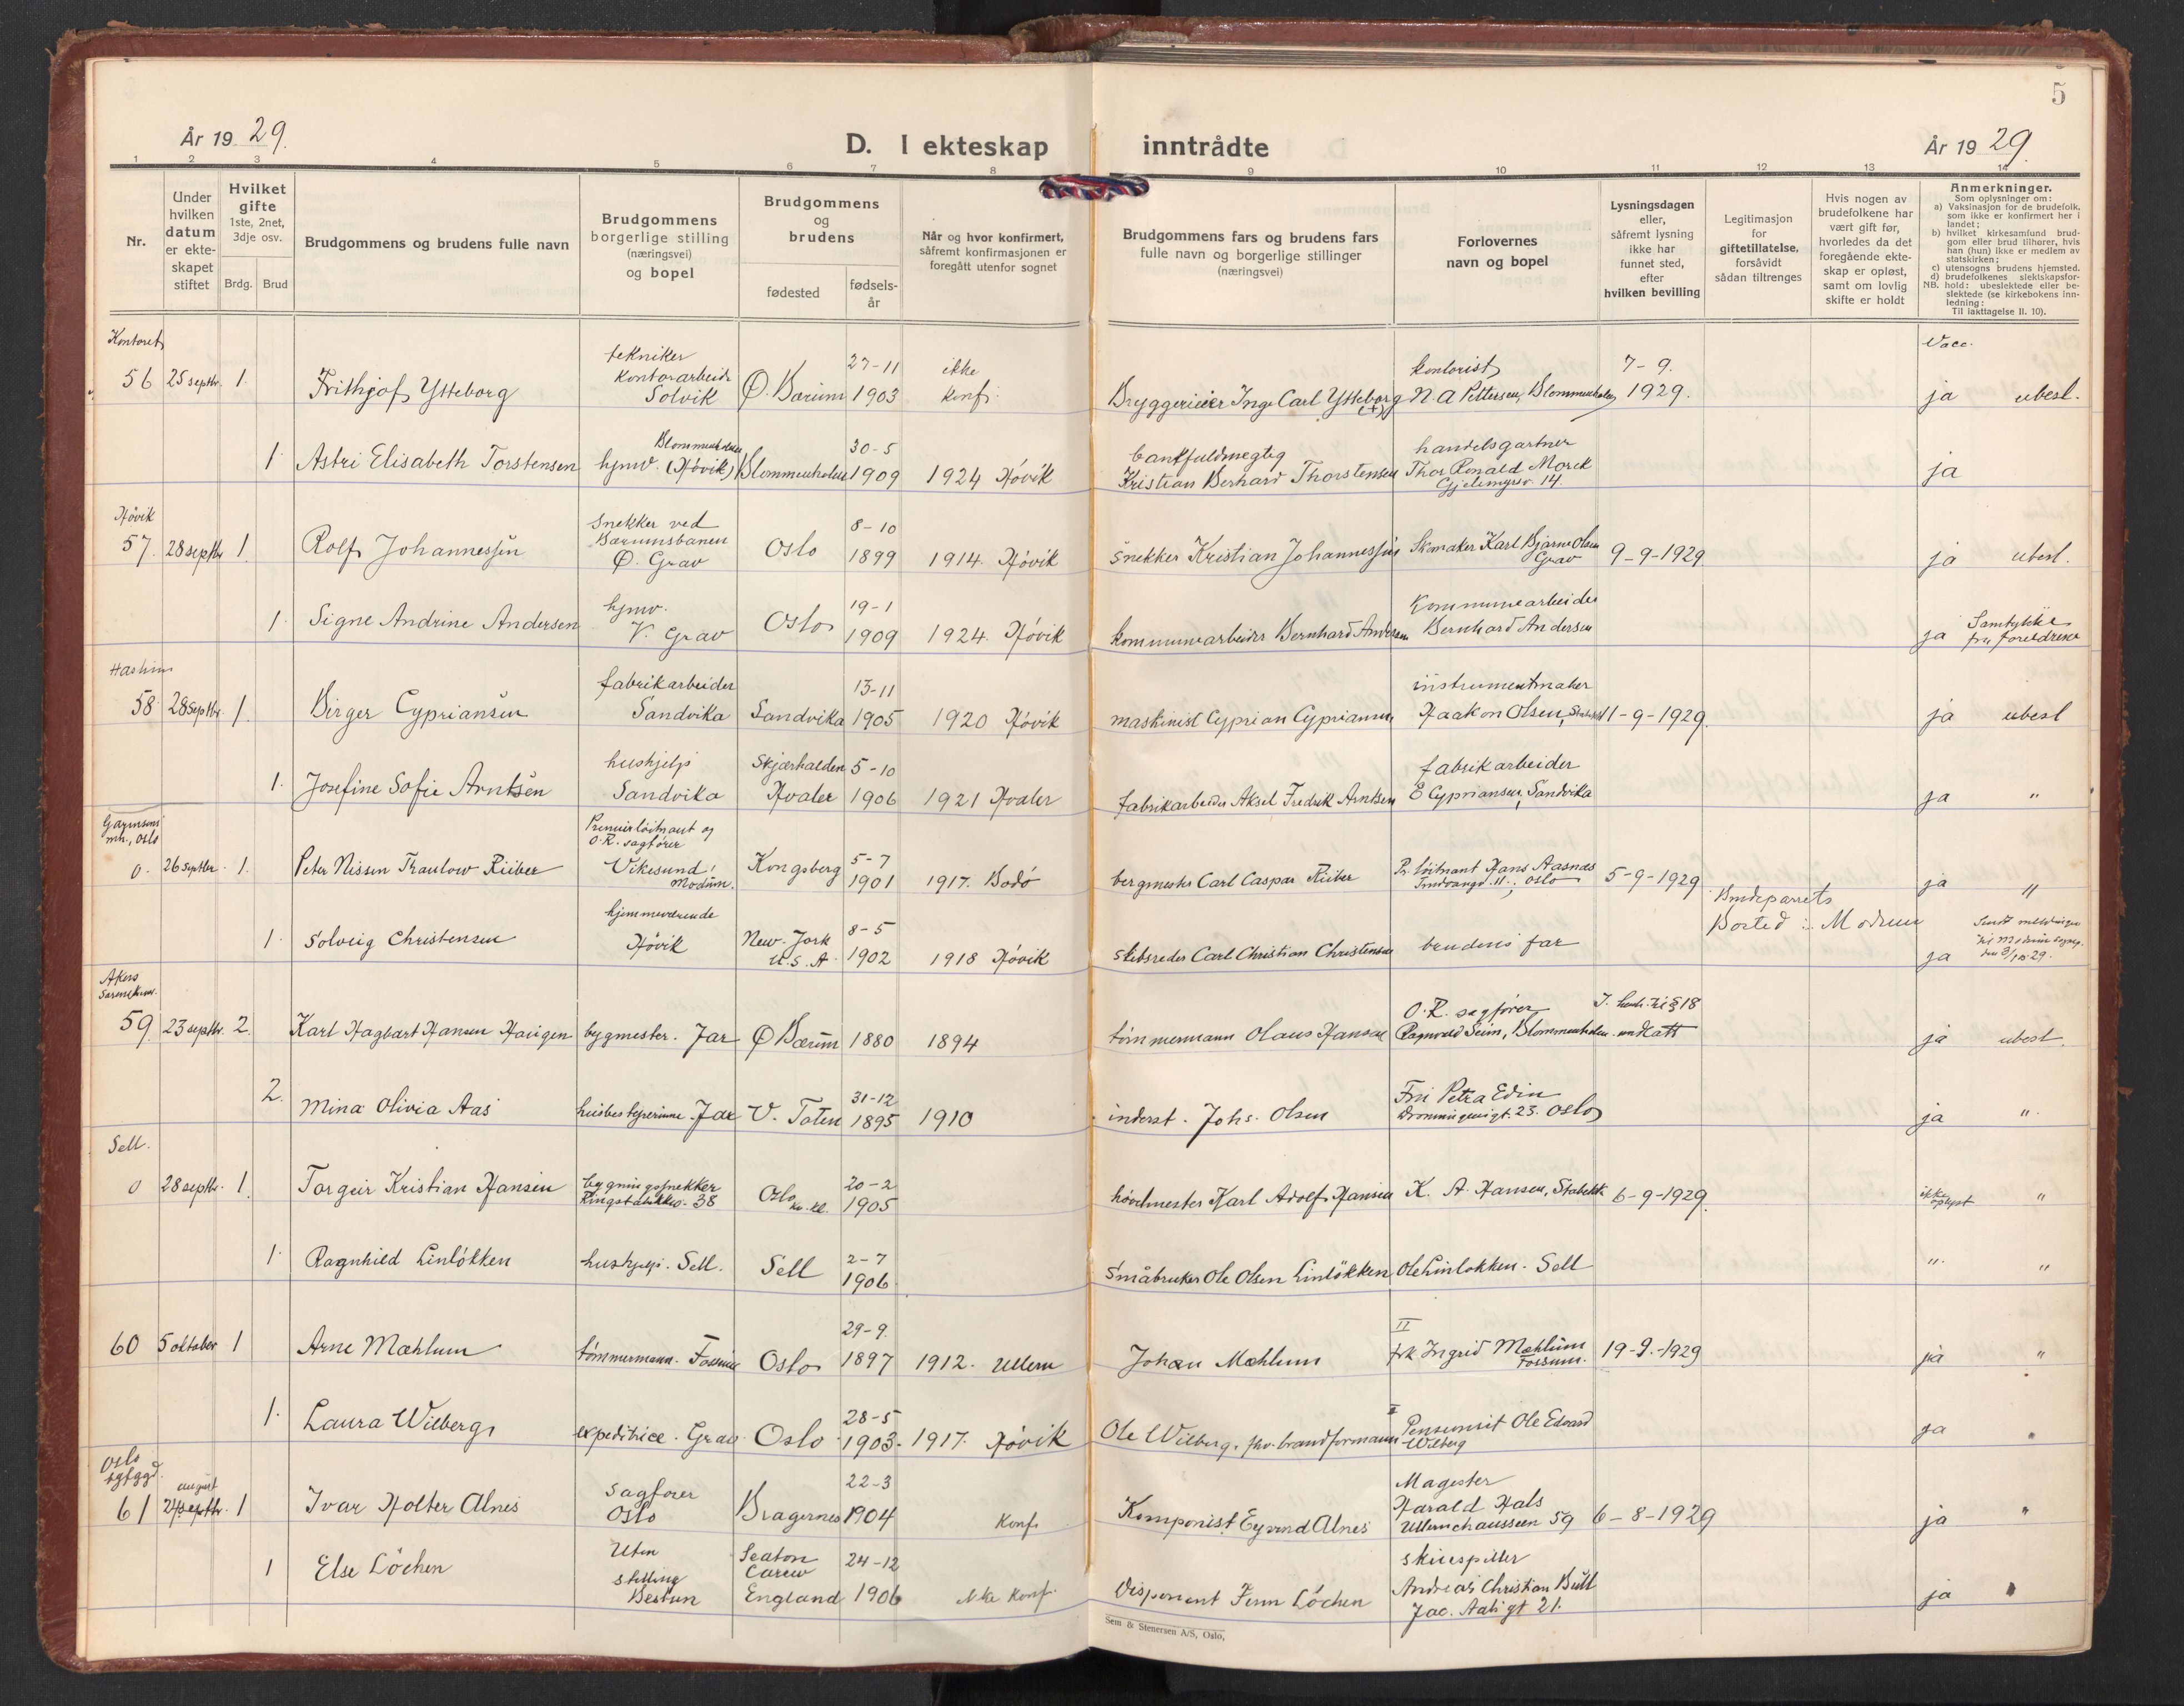 5
År 1929. D. I ekteskap inntrådte År 1929.
1 2 3 4 5 6 7 8 9 10 11 12 13 14
Nr.
Under hvilken datum er ekteskapet stiftet
Hvilket gifte 1ste, 2net, 3dje osv.
Brdg. Brud
Brudgommens og brudens fulle navn
Brudgommens borgerlige stilling (næringsvei) og bopel
Brudgommens og brudens
fødested fødselsår
Når og hvor konfirmert, såfremt konfirmasjonen er foregått utenfor sognet
Brudgommens fars og brudens fars fulle navn og borgerlige stillinger (næringsvei)
Forlovernes navn og bopel
Lysningsdagen eller, såfremt lysning ikke har funnet sted, efter hvilken bevilling
Legitimasjon for giftetillatelse, forsåvidt sådan tiltrenges
Hvis nogen av brudefolkene har vært gift før, hvorledes da det foregående ekteskap er opløst, samt om lovlig skifte er holdt
Anmerkninger.
Som oplysninger om:
a) Vaksinasjon for de brudefolk, som ikke er konfirmert her i landet;
b) hvilket kirkesamfund brudgom eller brud tilhører, hvis han (hun) ikke er medlem av statskirken;
c) utensogns brudens hjemsted.
d) brudefolkenes slektskapsforhold: ubeslektede eller beslektede (se kirkebokens innledning:
NB.
Til iakttagelse II. 10).
Kontoret Vacc.
56 25 septbr. 1. Frithjof Ytteborg tekniker kontorarbeide Solvik Ø. Bærum 27-11 1903 ikke konf. Bryggerieier Inge Carl Ytteborg (+) kontorist N. A Pettersen, Blommenholm 7-9. 1929. ja ubesl.
1 Astri Elisabeth Torstensen hjmv. Blommenholm (Høvik) Blommenholm 30-5 1909 1924 Høvik bankfuldmegtig Kristian Berhard Thorstensen handelsgartner Thor Ronald Morck Gjelemyrsv. 14. ja
Høvik
57. 28 septbr 1. Rolf Johannessen Snekker ved Bærumsbanen Ø. Grav Oslo 8-10 1899 1914. Høvik Snekker Kristian Johannessen Skomaker Karl Bjarne Olsen Grav 9-9-1929 ja ubesl.
1. Signe Andrine Andersen hjmv. V. Grav Oslo 19-1 1909 1924. Høvik kommunearbeider Bernhard Andersen Kommunearbeider Bernhard Andersen ja Samtykke fra foreldrene
Haslum
58 28 septbr. 1. Birger Cypriansen fabrikarbeider Sandvika Sandvika 13-11 1905 1920 Høvik maskinist Cyprian Cypriansen instrumentmaker Haakon Olsen, Stabekk 11-9-1929. ja ubesl
1. Josefine Sofie Arntsen hushjelp Sandvika Skjærhalden Hvaler 5-10 1906 1921 Hvaler fabrikarbeider Aksel Fredrik Arntsen fabrikarbeider E Cypriansen, Sandvika ja "
Garnisons mh., Oslo
0. 26 septbr. 1. Peter Nissen Thaulow Riiber Premierløitnant og O.R. sagfører Vikesund, Modum. Kongsberg 5-7 1901 1917. Bodø bergmester Carl Caspar Riiber Pr. løitnant Hans Aasnæs Oslo 5-9-1929 ja "
1. Solveig Christensen hjemmeværende Høvik New-York U.S.A. 8-5 1902 1918 Høvik skibsreder Carl Christian Christensen brudens far Brudeparrets Bosted: Modum ja Sendt meldinger til Modum sognep. den 3/10 29.
Akers Sorenskrivr.
59. 23 septbr. 2. Karl Hagbart Hansen Haugen bygmester. Jar Ø Bærum 1880 1894 tømmermann Olaus Hansen O.R. sagfører Ragnvald Seim, Blommenholm. J. henh. til § 18 undtatt ja ubesl.
2. Mina Olivia Aas husbestyrerinne. Jar V. Toten 31-12 1895 1910 inderst. Johs. Olsen Fru Petra Edin Dronningensgt. 23. Oslo ja ".
Sell.
0 28 septbr. 1. Torgeir Kristian Hansen bygningssnekker Ringstabekkv. 38 Oslo 20-2 1905 hovmester Karl Adolf Hansen K. A. Hansen, Stabekk 6-9-1929. ikke oplyst "
1. Ragnhild Linløkken hushjelp. Sell. Sell 2-7 1906 Småbruker Ole Olsen Linløkken Ole Linløkken. Sell " "
60 5 oktober 1 Arne Mæhlum tømmermann. Fossum Oslo 29-9. 1897 1912. Ullern Johan Mæhlum II frk Ingrid Mæhlum Fossum. 19-9-1929 ja "
1. Laura Wiberg expeditrice. Grav Oslo 28-5 1903. 1917. Høvik Ole Wiberg, fhv. brandformann Pensionist Ole Edvard Wiberg ja "
Oslo
61 24 septbr. august 1 Ivar Holter Alnes Sagfører Oslo Bragernes 22-3 1904 Konf. Komponist Eyvind Alnes Magister Harald Hals Ullernchausseen 59 6-8-1929 ja "
1 Else Löchen Uten stilling Bestun Seaton Carew England 24-12 1906 ikke konf. Disponent Finn Löchen skuespiller Andreas Christian Bull Jac. Aalsgt 21. ja "
Sem & Stenersen A/S, Oslo.